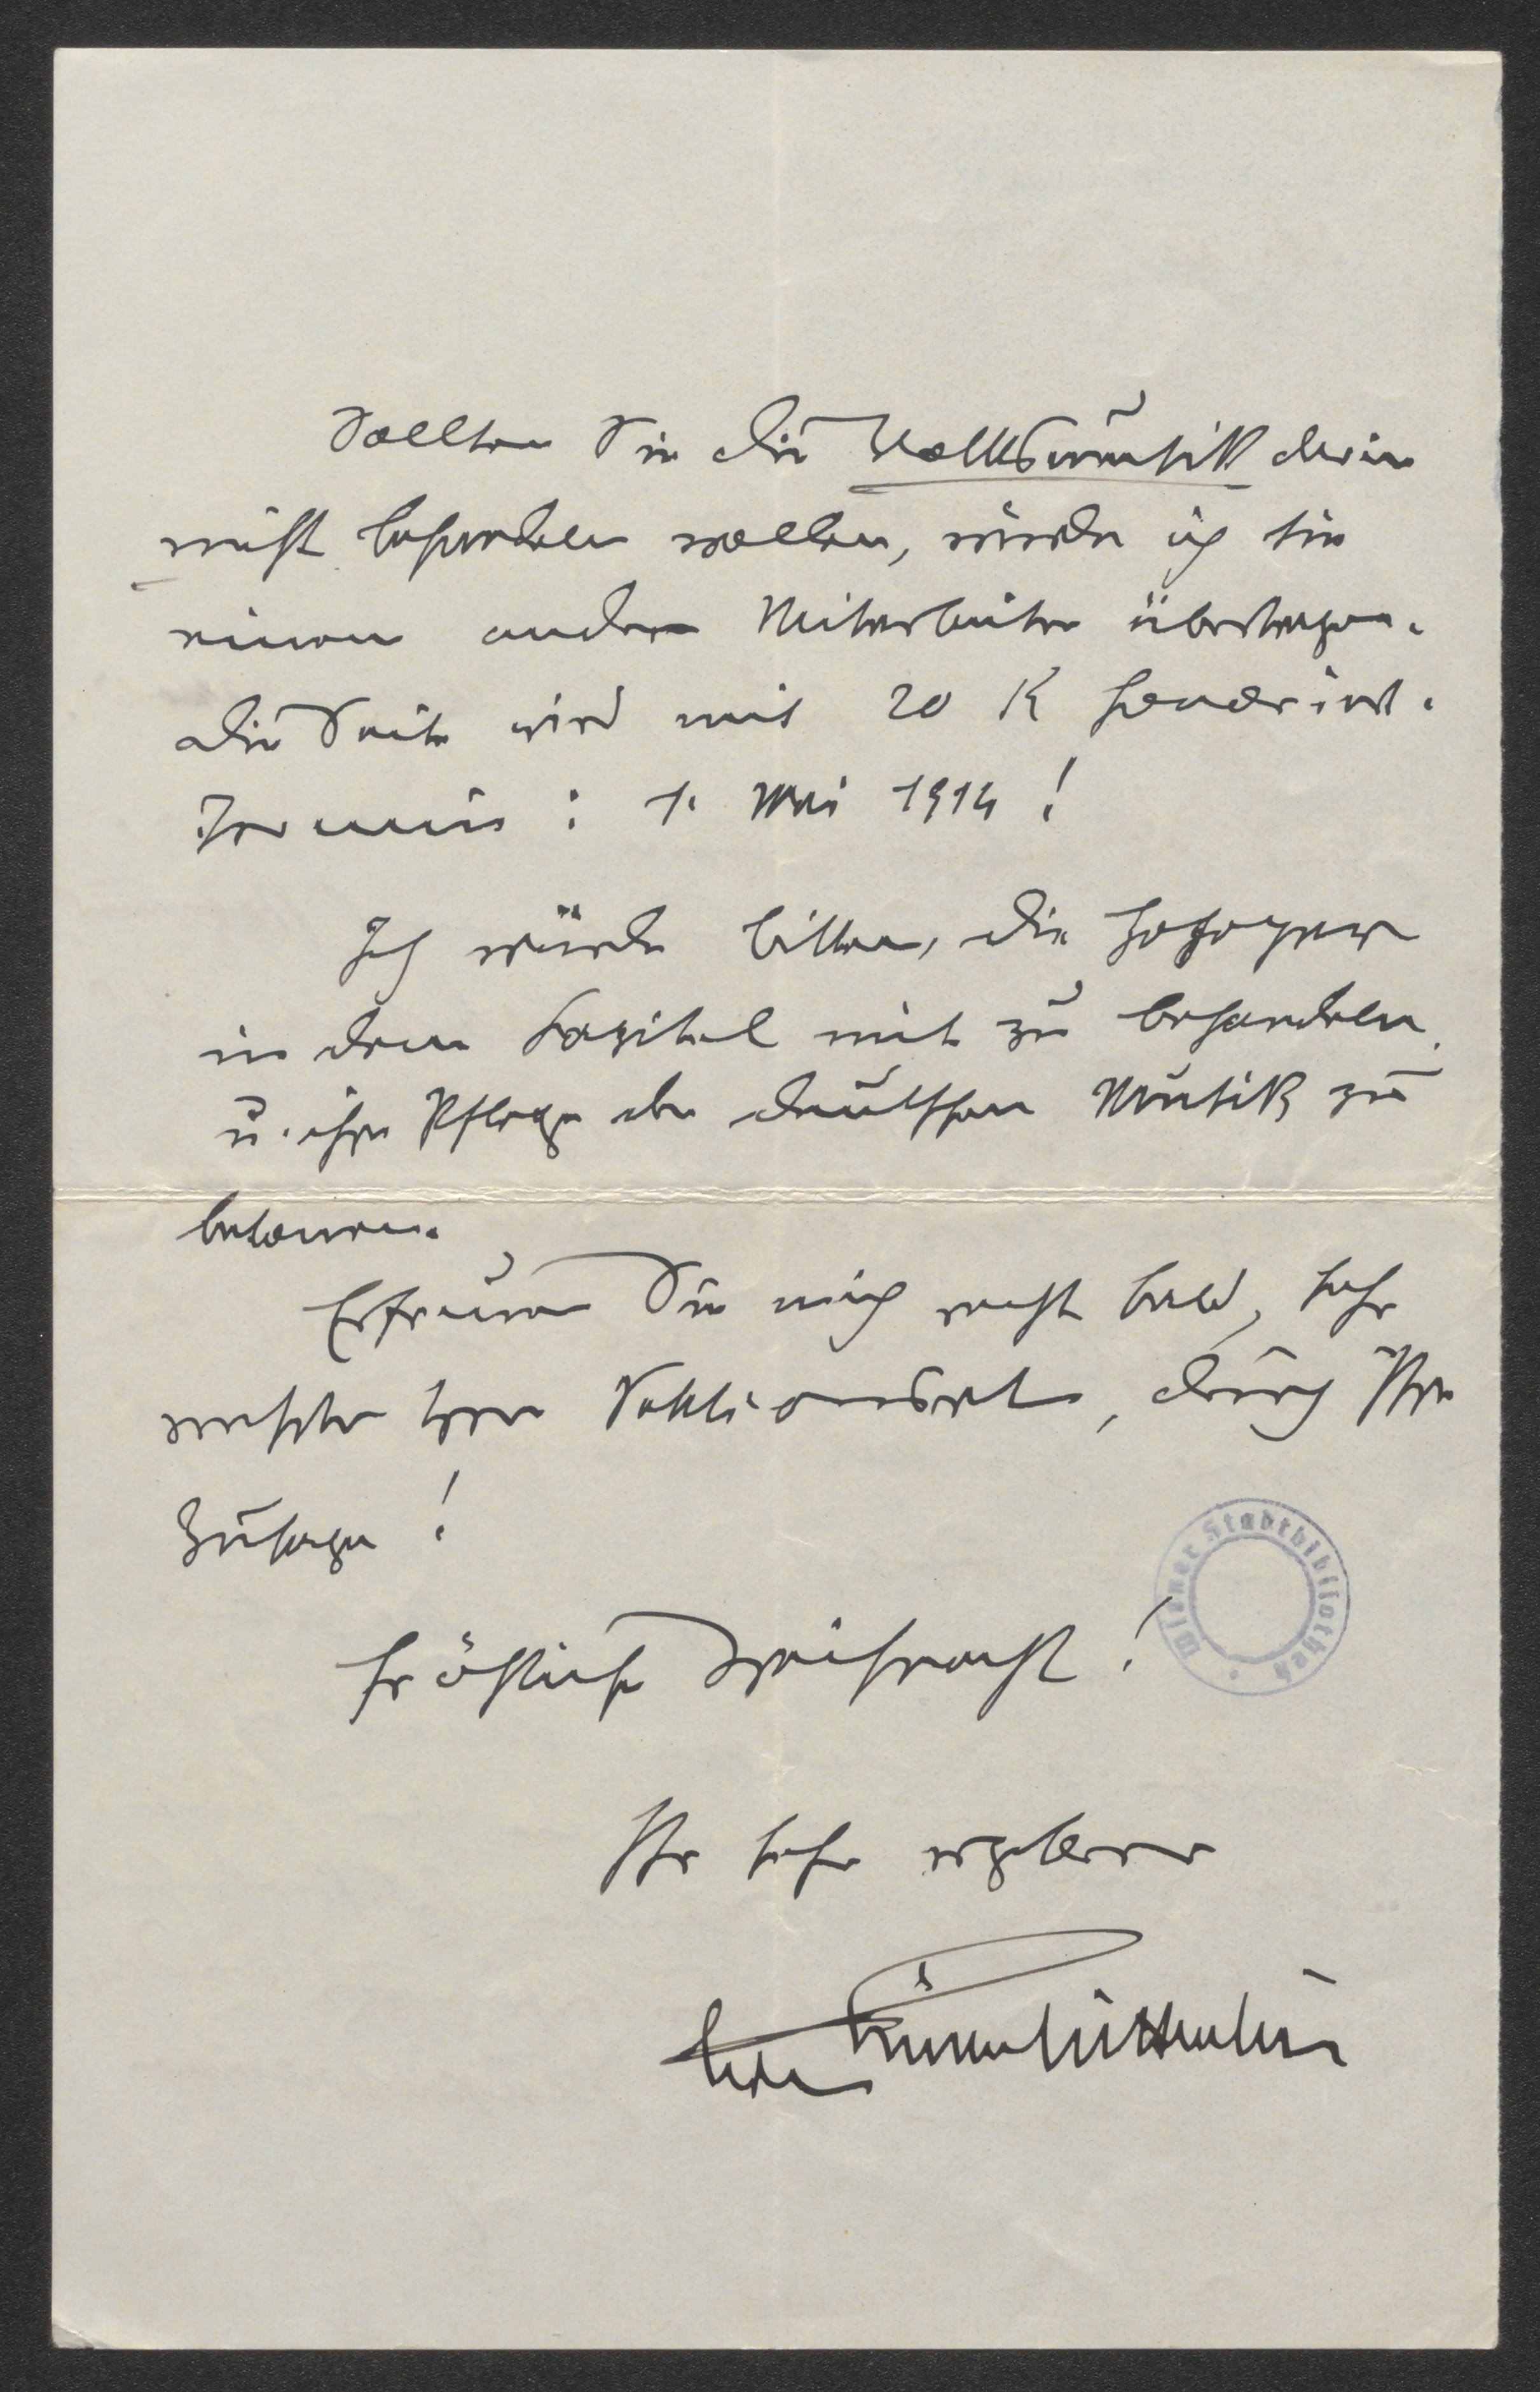 Sollten Sie die Volksmusik darin
nicht behandeln wollen, würde ich sie
einem andern Mitarbeiter übertragen.
Die Seite wird mit 20 K honoriert.
Termin: 1. Mai 1914!
Ich würde bitten, die Hofoper
in dem Kapitel mit zu behandeln
u. ihre Pflege der deutschen Musik zu
betonen.
Erfreuen Sie mich recht bald, sehr
verehrter Herr Sektionsrat, durch Ihre
Zusage!
Fröhliche Weihnacht!
Ihr sehr ergebener
Wiener Stadtbibliothek